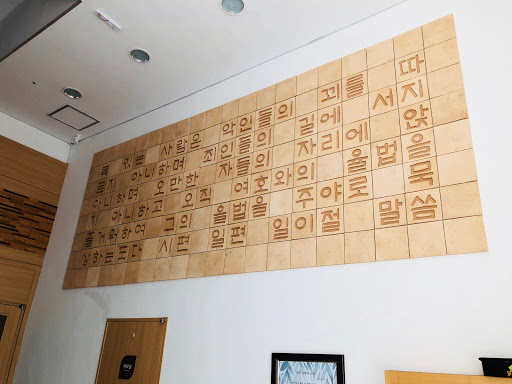 복 있는 사람은 악인들의 꾀를 따
르지 아니하며 죄인들의 길에 서지
아니하며 오만한 자들의 자리에 앉
지 아니하고 오직 여호와의 율법을
즐거워하여 그의 율법을 주야로 묵
상하는도다 시편 일편 일이절 말씀